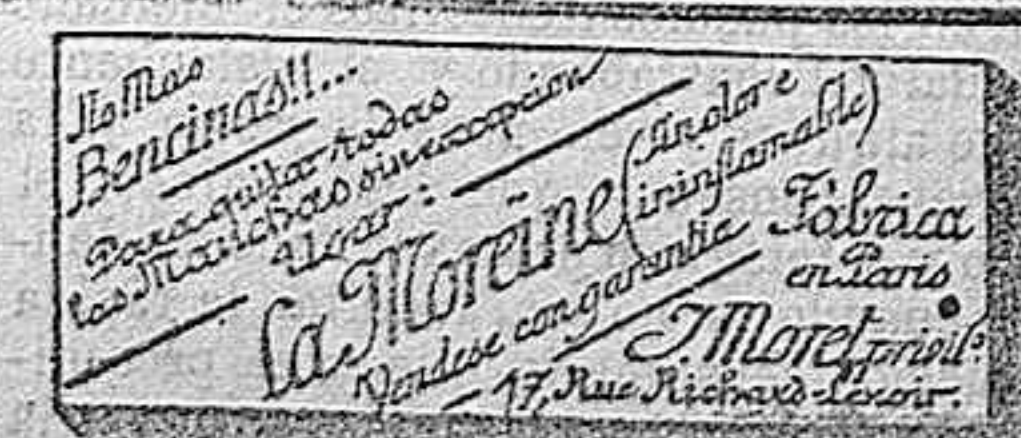 No Mas
Bencinas!!...
Para quitar todas
las Manchas sin excepcion
Usar:
La Moreïne
(Sin olor e
ininflamable)
Vendese con garantia
Fábrica
en Paris
J. Moret, privil.º
17, Rue Richard-Lenoir.